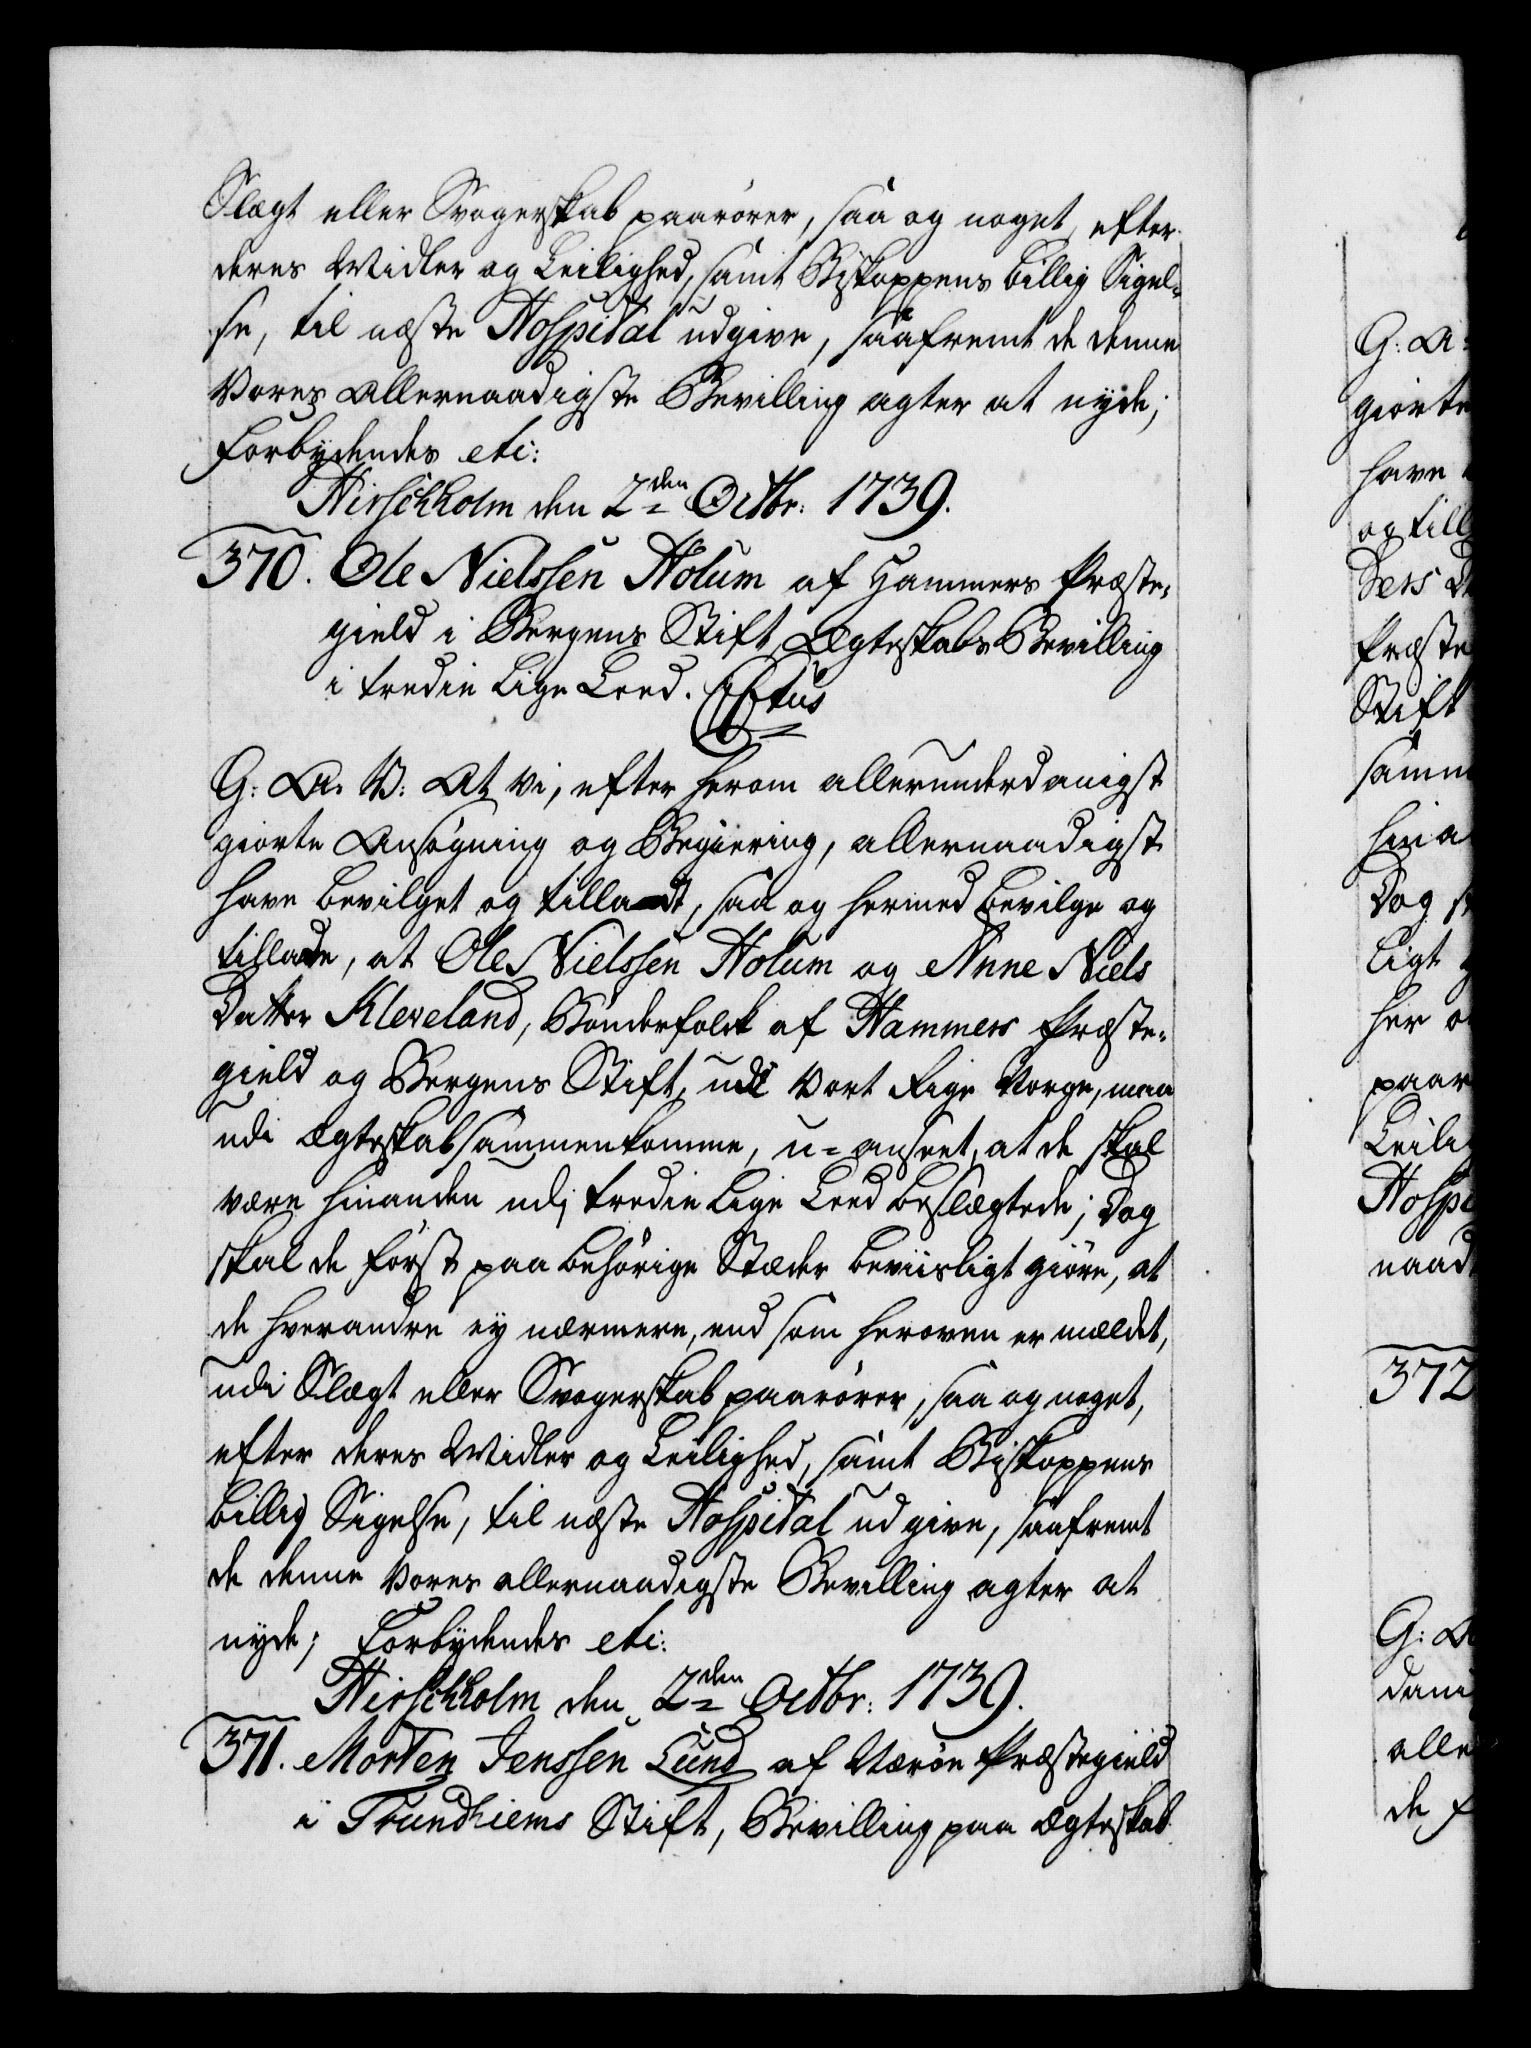 Slægt eller Svogerskab paarører, saa og noget, efter
deres Midler og Leilighed, samt Biskoppens billig Sigel-
se, til næste Hospital udgive, saafremt de denne
Vores allernaadigste Bevilling agter at nyde;
Forbydendes etc:
Hirschholm den 2den Octbr: 1739.
370. Ole Nielssen Holum af Hammers Præste-
gield i Bergens Stift, Ægteskabs Bevilling
i tredie Lige Leed.
G: A: V: At Vi, efter herom allerunderdanigst
giorte Ansøgning og Begiering, allernaadigst
have bevilget og tilladt, saa og hermed bevilge og
tillade, at Ole Nielssen Holum og Anne Niels
Datter Kleveland, Bønderfolck af Hammers Præste-
gield og Bergens Stift, udi Vort Rige Norge, maa
udi Ægteskab sammenkomme, u-anseet, at de skal
være hinanden udi tredie Lige Leed beslægtede; Dog
skal de først paa behørige Stæder beviisligt giøre, at
de hverandre ey nærmere, end som heroven er meldet,
udi Slægt eller Svogerskab paarører, saa og noget,
efter deres Midler og Leilighed, samt Biskoppens
billig Sigelse, til næste Hospital udgive, saafremt
de denne Vores allernaadigste Bevilling agter at
nyde; Forbydendes etc:
Hirschholm den 2den Octbr: 1739.
371. Morten Jenssen Lund af Nærøe Præstegield
i Trundhiems Stift, Bevilling paa Ægteskab
G: A:
giorte
have
og till
Præste
Stift
samm
hina
Dog
ligt
her o
paar
Leili
Hospi
naad
372
G: A
dani
alle
de f